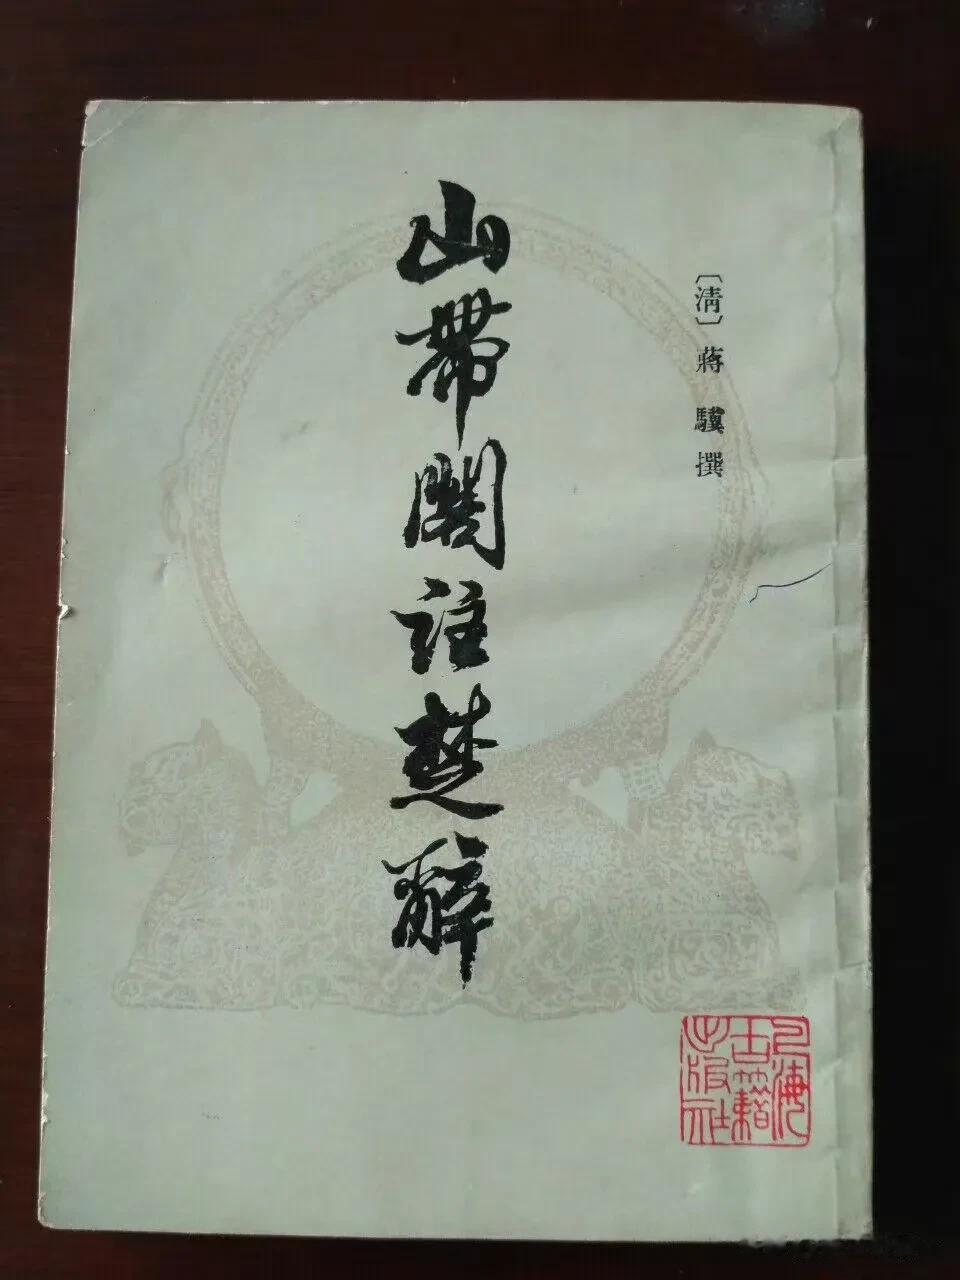 〔清〕蔣驥撰
山帶閣註楚辭
上海古籍出版社